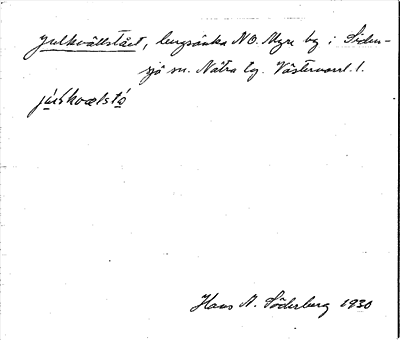 Julkvällstået, bergsänka N.O. Myre by i Siden-
sjö sn. Nätra tg. Västernorrl. l.
júlkvœlstó
Hans N. Söderberg 1930